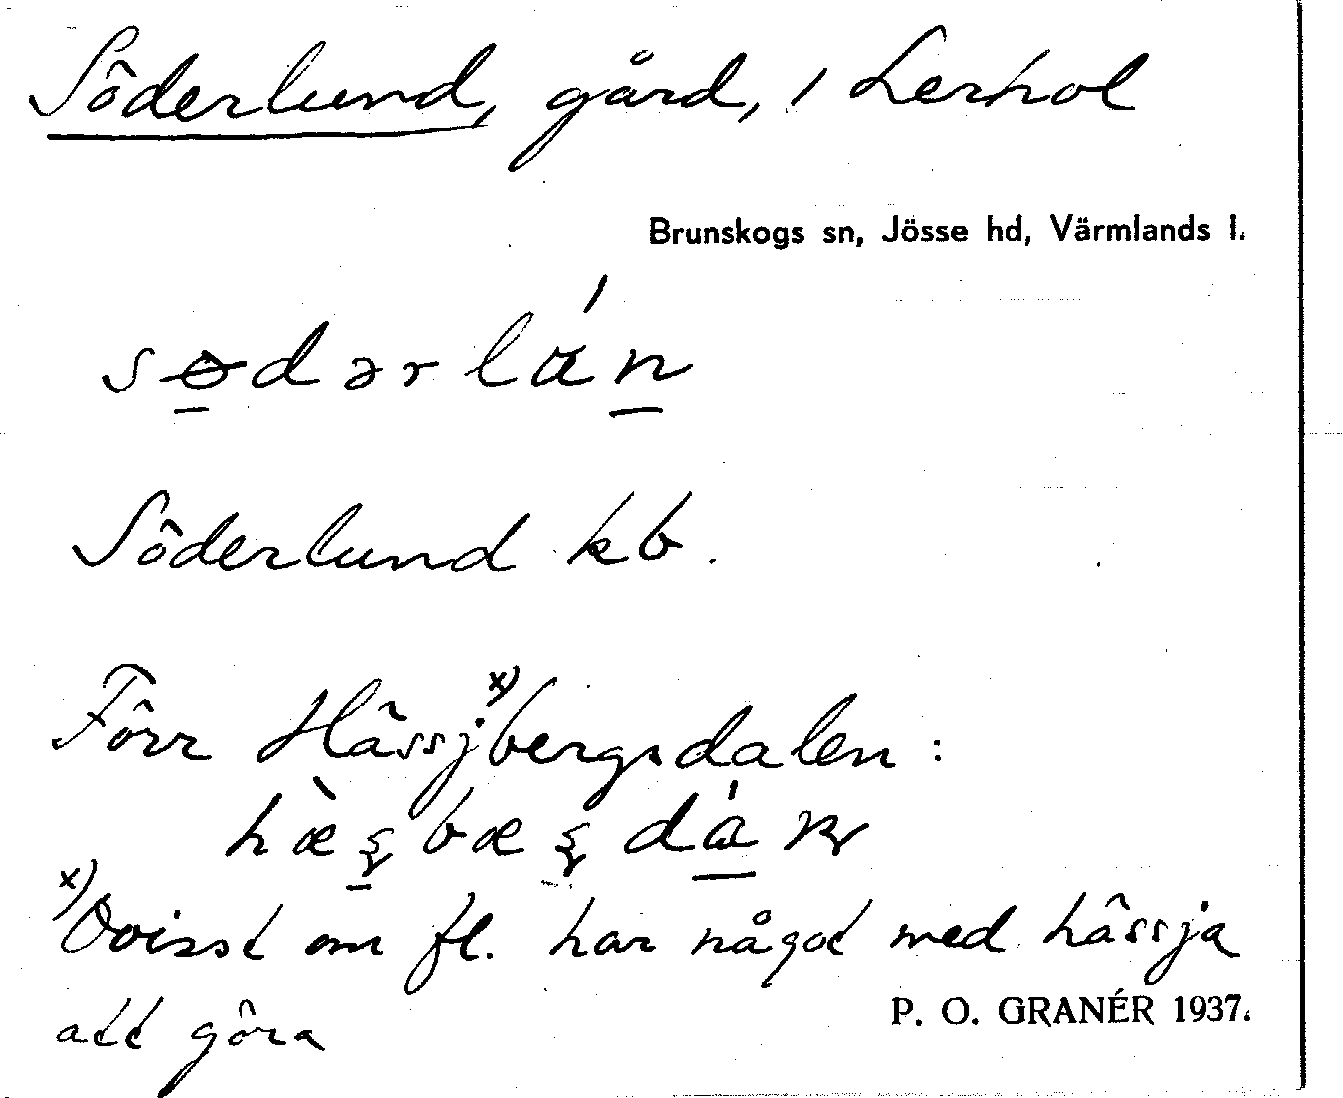 Söderlund, gård, i Lerhol
Brunskogs sn, Jösse hd, Värmlands l.
Söderlund kb.
Förr Hässjˣ⁾bergsdalen:
x) Ovisst om fl. har något med hässja
att göra
P. O. GRANÉR 1937.